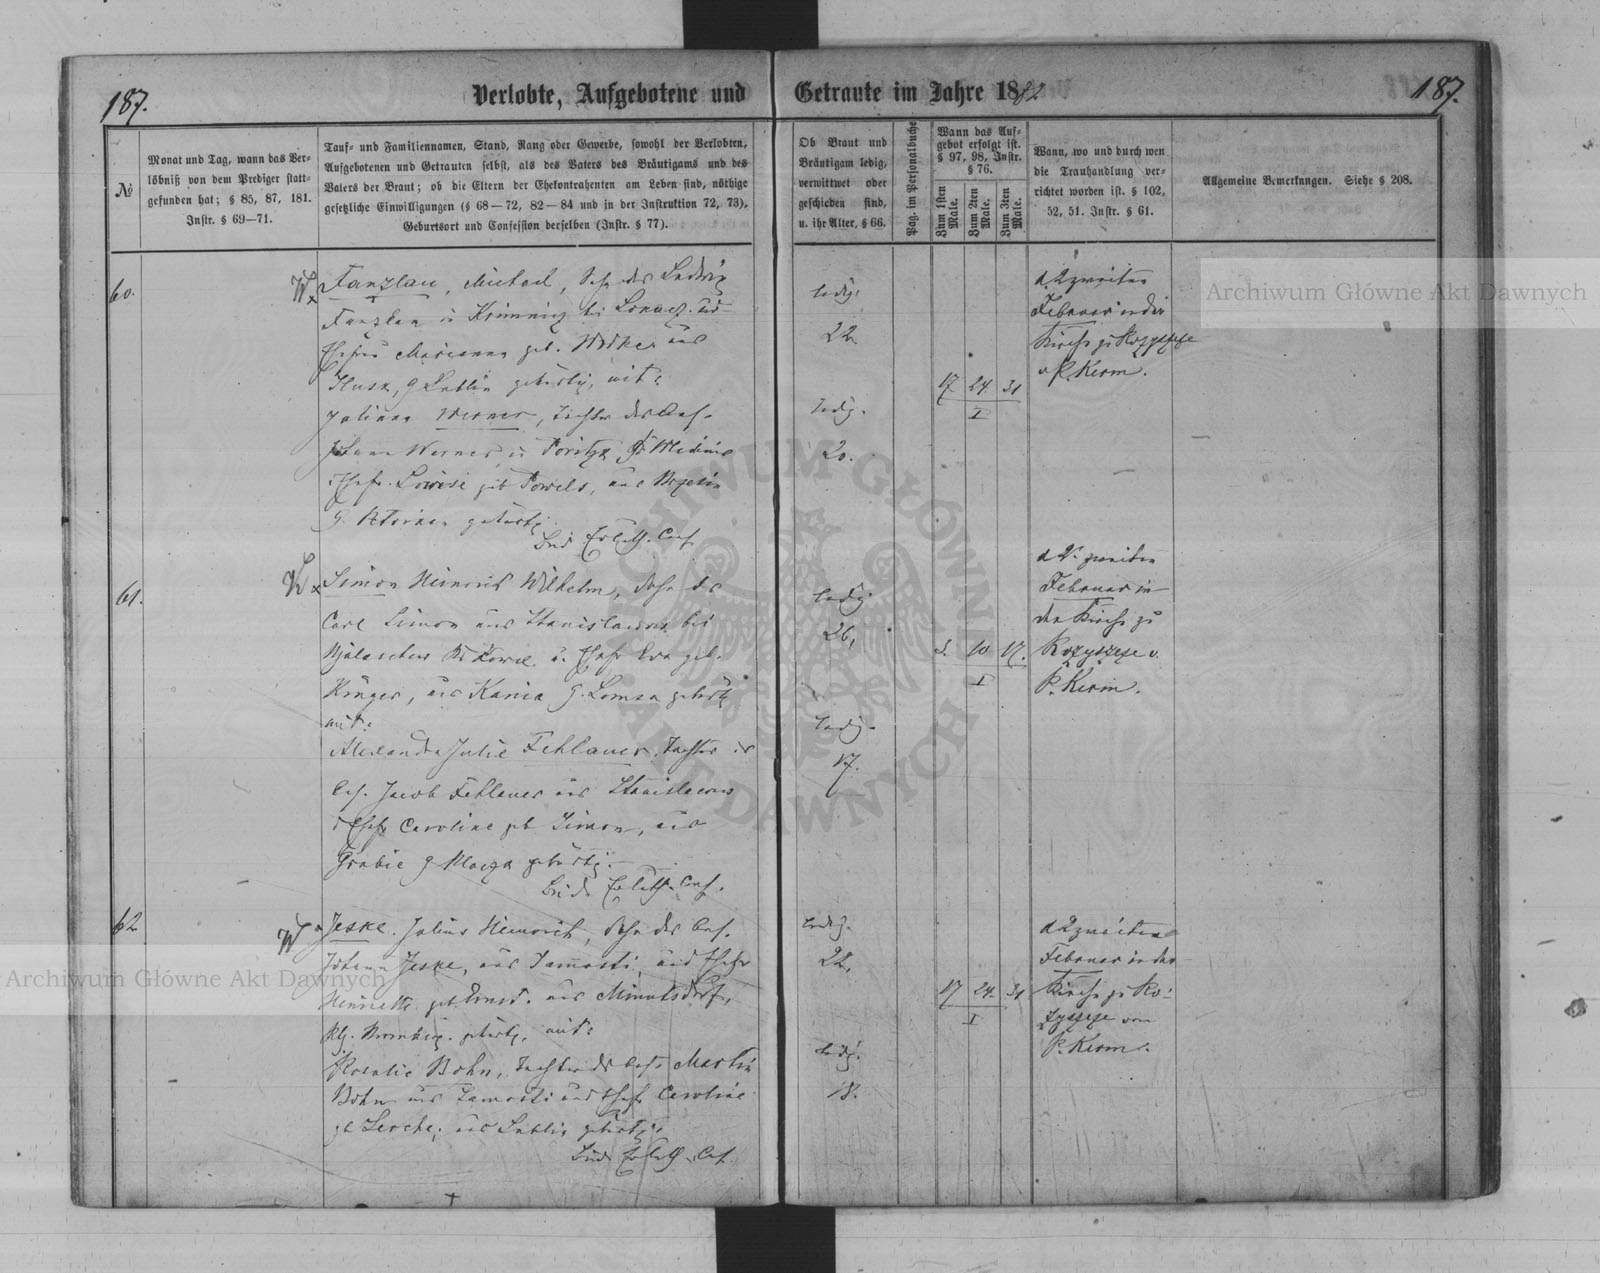 187.
Verlobte, Aufgebotene und Getraute im Jahre 1882
187.
№
Monat und Tag, wann das Ver-
löbniß von dem Prediger statt-
gefunden hat; § 85, 87, 181.
Instr. § 69—71.
Tauf- und Familiennamen, Stand, Rang oder Gewerbe, sowohl der Verlobten,
Aufgebotenen und Getrauten selbst, als des Vaters des Bräutigams und des
Vaters der Braut; ob die Eltern der Ehekontrahenten am Leben sind, nöthige
gesetzliche Einwilligungen (§ 68—72, 82—84 und in der Instruktion 72, 73),
Geburtsort und Confession derselben (Instr. § 77).
Ob Braut und
Bräutigam ledig,
verwittwet oder
geschieden sind,
u. ihr Alter, § 66.
Pag. im Personalbuche
Wann das Auf-
gebot erfolgt ist.
§ 97, 98, Instr.
§ 76.
Zum 1sten
Male.
Zum 2ten
Male.
Zum 3ten
Male.
Wann, wo und durch wen
die Trauhandlung ver-
richtet worden ist. § 102,
52, 51. Instr. § 61.
Allgemeine Bemerkungen. Siehe § 208.
60.
Tanzlau, Michael, Sohn des Ludwig
Tanzlau in bei und
Ehefrau Marianna geb. aus
G. Lublin gebürtig, mit:
Juliana Werner, Tochter des
Werner
Ehefr. geb. aus
G. gebürtig.
Beide Ev. Luth. Conf.
ledig.
22
ledig.
20.
17 24. 31
I
d. 2 zweiten
Februar in der
Kirche zu Rozyszcze
v. P. Kerm.
61.
Simon Heinrich Wilhelm, Sohn des
Carl Simon aus Stanislawow bei
u. Ehefr Eva geb.
Krüger, aus Kania G. Lomza gebürtig
mit:
Alexandra Julie Fehlauer, Tochter des
Jacob Fehlauer aus Stanislawow
Ehefr Caroline geb Simon, aus
Grabie G gebürtig.
Beide Ev Luth. Conf.
ledig
26,
ledig.
17.
3. 10 17.
I
d. 2. zweiten
Februar in
der Kirche zu
Rozyszcze v.
P. Kerm.
62
Jeske. Julius Heinrich, Sohn des
Johann Jeske, aus Zamosti, und Ehefr
Henriette geb. aus
Bromberg. gebürtig, mit:
Rosalie Bohn, Tochter des Martin
Bohn aus Zamosti und Ehefr Caroline
geb Lerche, aus Lublin gebürtig.
Beide Ev Luth. Conf.
ledig.
22.
ledig.
18.
17 24. 31
I
d. 2 zweiten
Februar in der
Kirche zu Ro-
zyszcze von
P. Kerm.
Archiwum Główne Akt Dawnych
Archiwum Główne Akt Dawnych
ARCHIWUM GŁÓWNE AKT DAWNYCH